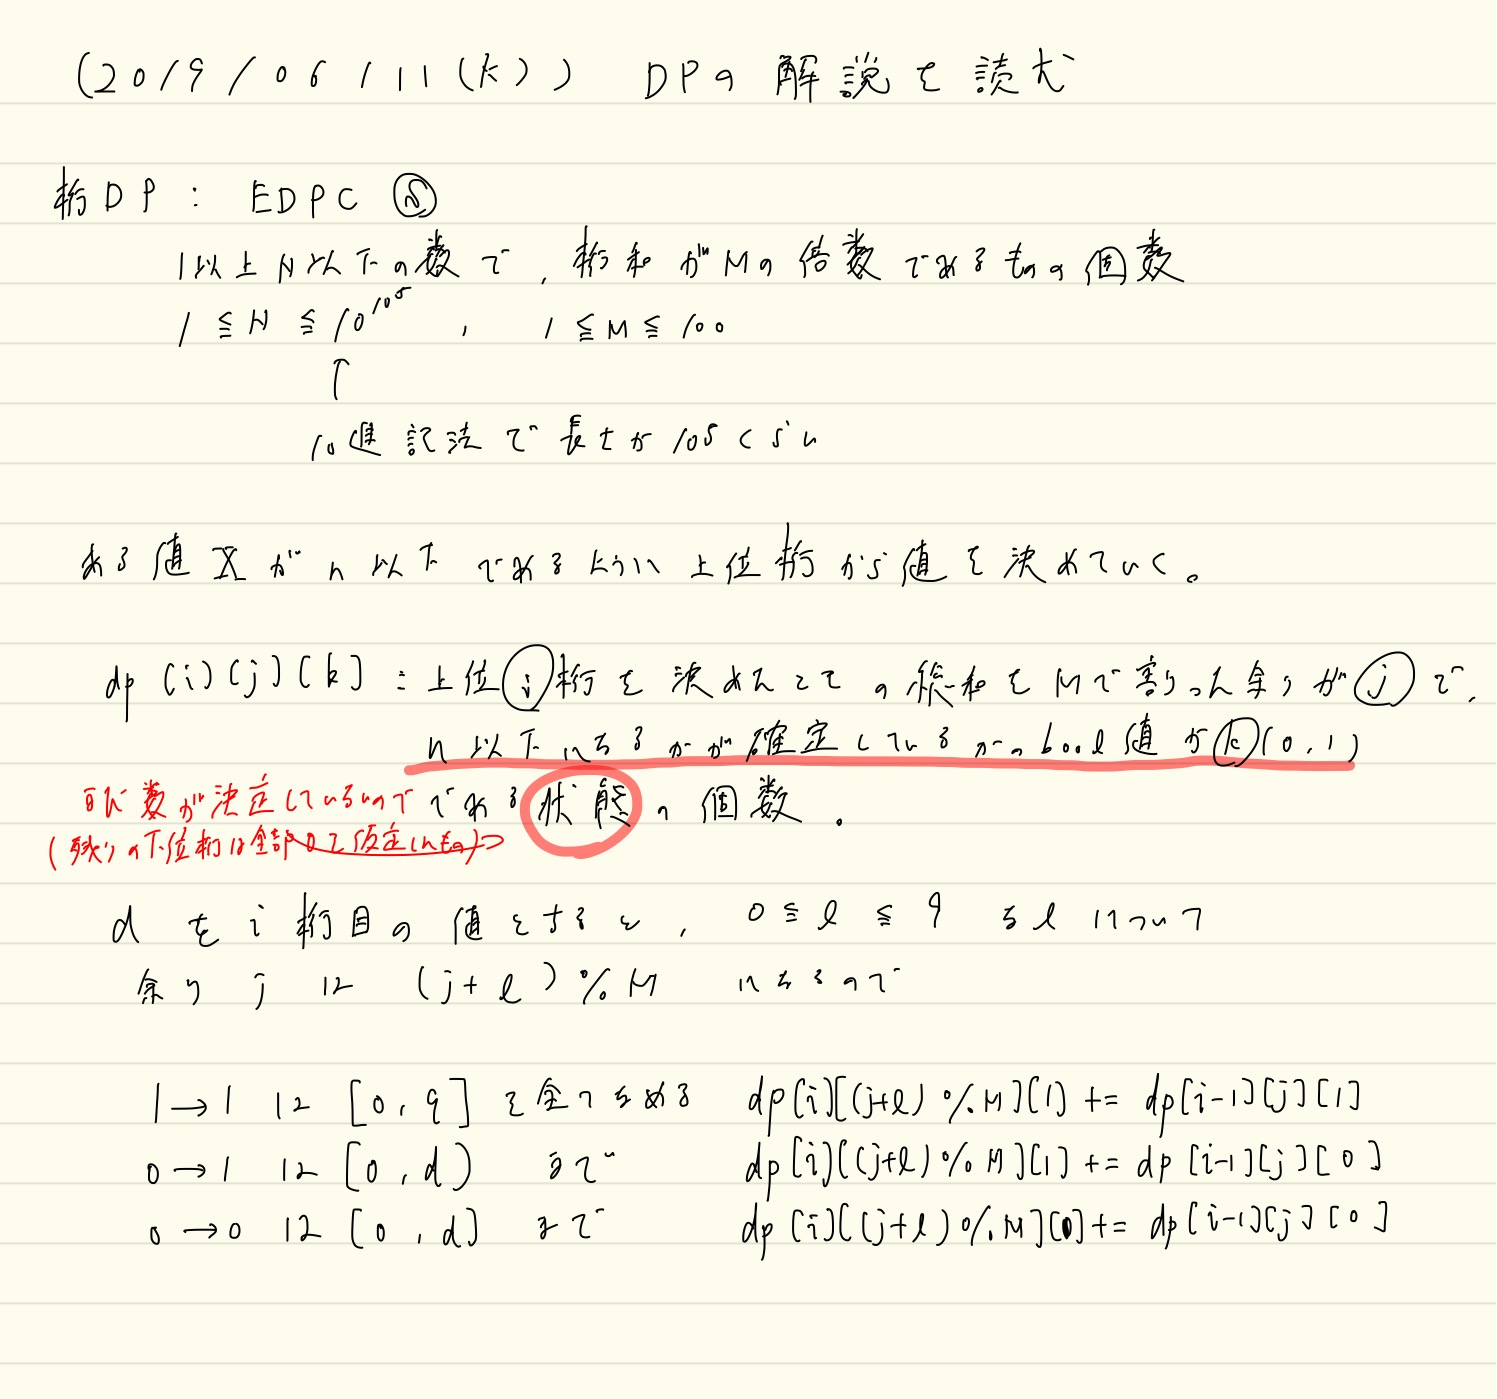 (2019/06/11(火)) DPの解説を読む
桁DP: EDPC Ⓢ
1以上N以下の数で、桁和がMの倍数であるものの個数
1 ≦ N ≦ 10^10^5 , 1 ≦ M ≦ 100
↑
10進記法で長さが 10^5 くらい
ある値 X が n 以下 であるように 上位桁から値を決めていく。
dp[i][j][k] : 上位 i 桁を決めたとての総和をMで割った余りが j で、
n以下になるかが確定しているかのbool値が k (0,1)
である状態の個数。
まだ数が決定していないので
(残りの下位桁は全部0と仮定したもの)
d を i 桁目の値とすると, 0 ≦ l ≦ 9 なる l について
余り j は (j+l)%M になるので
1→1 は [0,9] を全て含める dp[i][(j+l)%M][1] += dp[i-1][j][1]
0→1 は [0,d) まで dp[i][(j+l)%M][1] += dp[i-1][j][0]
0→0 は [0,d] まで dp[i][(j+l)%M][0] += dp[i-1][j][0]